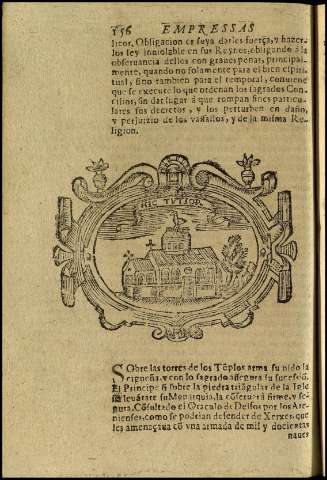 156 EMPRESSAS
licos, Obligacion es suya darles fuerça, y hazer
los ley inuiolable en sus Reynos, obligando à la
obseruancia dellos con graues penas, principal-
mente, quando no solamente para el bien espiri-
tual, sino tambien para el temporal, conuiene
que se execute lo que ordenan los sagrados Con-
cilios, sin dar lugar à que rompan fines particu-
lares sus decretos, y los perturben en daño,
y perjuizio de los vassallos, y de la misma Re-
ligion.
HIC TVTIOR
SObre las torres de los Tẽplos arma su nido la
cigueña, y con lo sagrado assegura su sucessiõ.
El Principe q̃ sobre la piedra triãgular de la Igle
sia leuãtare su Monarquia, la cõseruarà firme, y se-
gura. Cõsultado el Oraculo de Delfos por los Ate-
nienses, como se podrian defender de Xerxes, que
les amenaçaua cõ vna armada de mil y docientas
naues